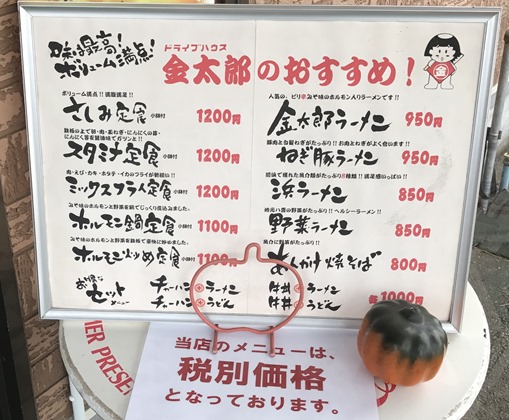 味は最高!
ボリューム満点!
ドライブハウス
金太郎のおすすめ!
金
ボリューム満点!!満腹満足!!
さしみ定食 小鉢付 1200円
スタミナ定食 小鉢付 1200円
肉・えび・カキ・ホタテ・イカのフライが勢揃い!!
ミックスフライ定食 小鉢付 1200円
みそ味のホルモンと野菜を鍋でじっくり煮込みました。
ホルモン鍋定食 小鉢付 1100円
みそ味のホルモンと野菜を鉄板で豪快に炒めました。
ホルモン炒め定食 小鉢付 1100円
お得な
セット
メニュー
チャーハン ラーメン
チャーハン うどん
人気の、ピリ辛みそ味のホルモン入りラーメンです!!
金太郎ラーメン 950円
ねぎ豚ラーメン 950円
浜ラーメン 850円
野菜ラーメン 850円
あんかけ焼そば 800円
牛丼 ラーメン
牛丼 うどん
各1000円
当店のメニューは、
税別価格
となっております。